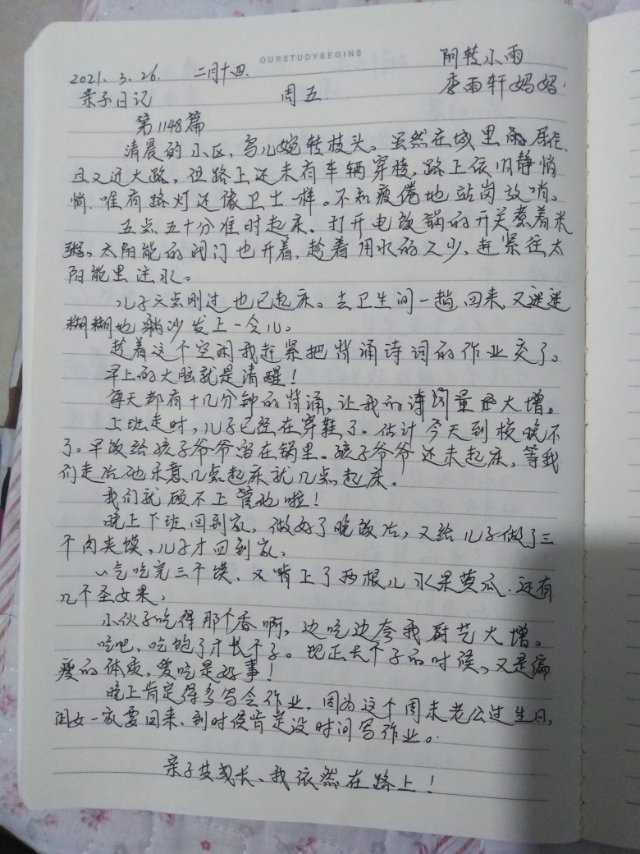 OURSTUDYBEGINS
阴转小雨
2021.3.26 二月十四. 李雨轩妈妈.
亲子日记 周五.
第1148篇
清晨的小区，鸟儿婉转枝头。虽然在城里居住
且又近大路，但路上还未有车辆穿梭，路上依旧静悄
悄.唯有路灯还像卫士一样。不知疲倦地站岗放哨。
五点五十分准时起床。打开电饭锅的开关熬着米
粥。太阳能的阀门也开着，趁着用水的人少，赶紧往太
阳能里注水。
儿子六点刚过也已起床。去卫生间一趟回来，又迷迷
糊糊地躺沙发上一会儿。
趁着这个空闲我赶紧把背诵诗词的作业交了。
早上的大脑就是清醒！
每天都有十几分钟的背诵，让我的诗词量大增。
上班走时，儿子已经在穿鞋了。估计今天到校晚不
了。早饭给孩子爷爷留在锅里。孩子爷爷还未起床，等我
们走后他乐意几点起床就几点起床。
我们就顾不上管他啦！
晚上下班回到家，做好了晚饭后，又给儿子做了三
个肉夹馍，儿子才回到家。
一气吃完三个馍，又啃上了两根儿水果黄瓜.还有
几个圣女果，
小伙子吃得那个香啊，边吃边夸我厨艺大增。
吃吧，吃饱了才长个子。现正长个子的时候，又是偏
瘦的体质，爱吃是好事！
晚上肯定得多写会作业，因为这个周末老公过生日，
闺女一家要回来，到时候肯定没时间写作业。
亲子共成长、我依然在路上！